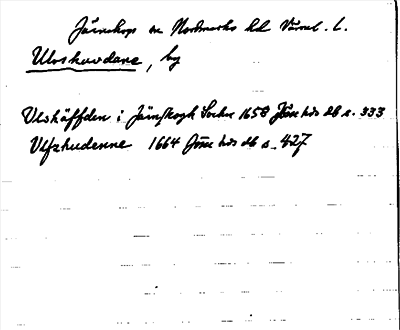 Järnskogs sn Nordmarks hd Värml. l.
Ulvskuvdane, by
Ulvshäffden i Järnskogh Sochn 1658 Jösse hds db s. 333
Ulfzhudenne 1664 Jösse hds db s. 427